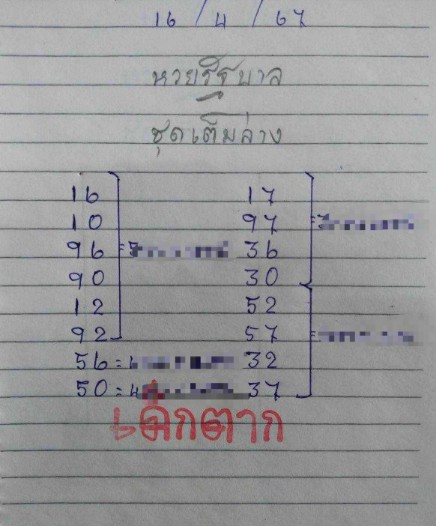 16 / 4 / 67
หวยรัฐบาล
ชุดเต็มล่าง
16 17
10 97 =
96 = 36
90 30
12 52
92 57 =
56 = 32
50 = 4 37
เด็กตาก